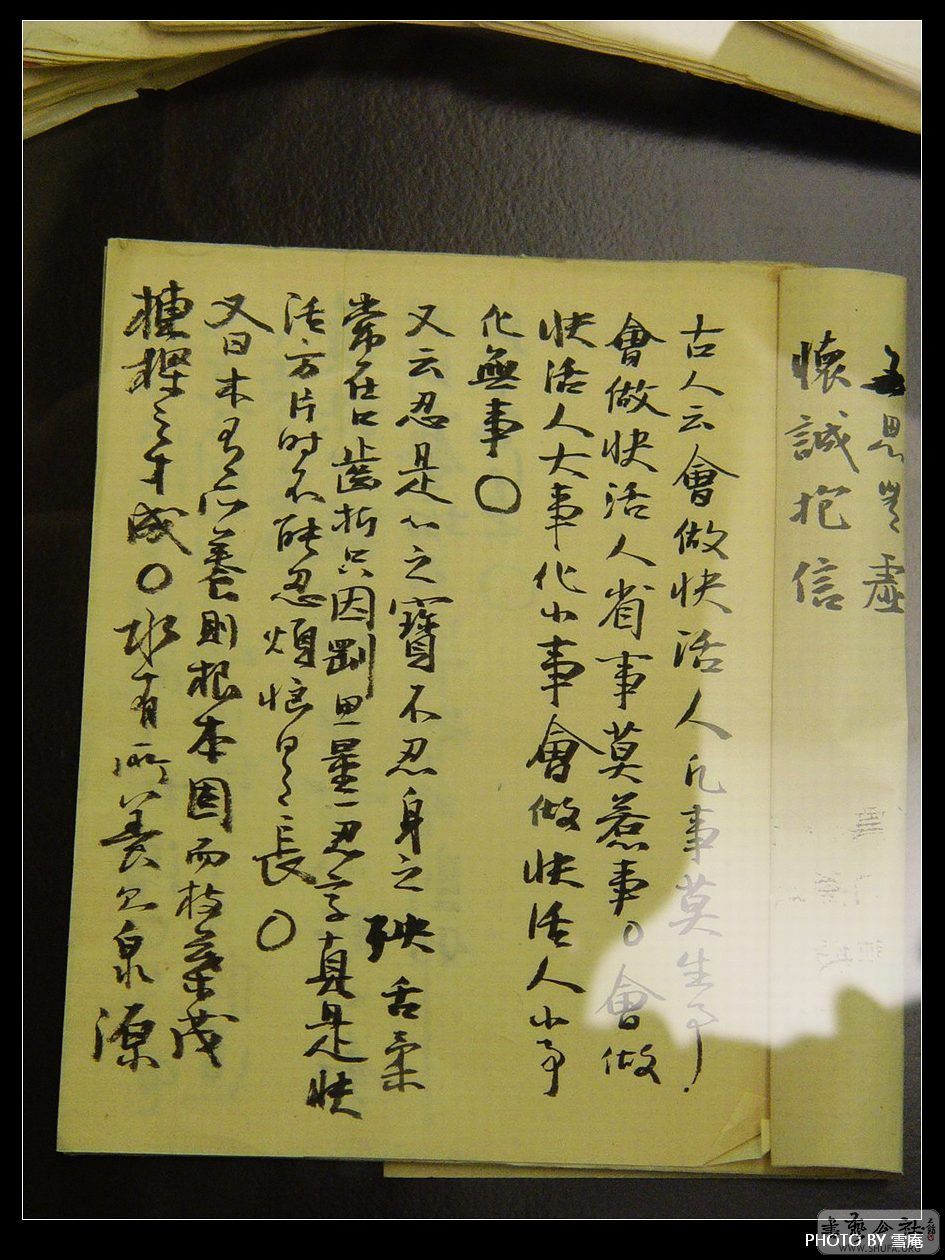 思 虛
懷誠抱信
古人云會做快活人凡事莫生事
會做快活人省事莫惹事○會做
快活人大事化小事會做快活人小事
化無事○
又云忍是心之寶不忍身之殃舌柔
常在口齒折只因剛思量一忍字真是快
活方片時不能忍煩惱日之長○
又曰木有所養則根本固而枝葉茂
棟樑之才成○水有所養則泉源
PHOTO BY 雪庵
WWW.SHUFA.ORG